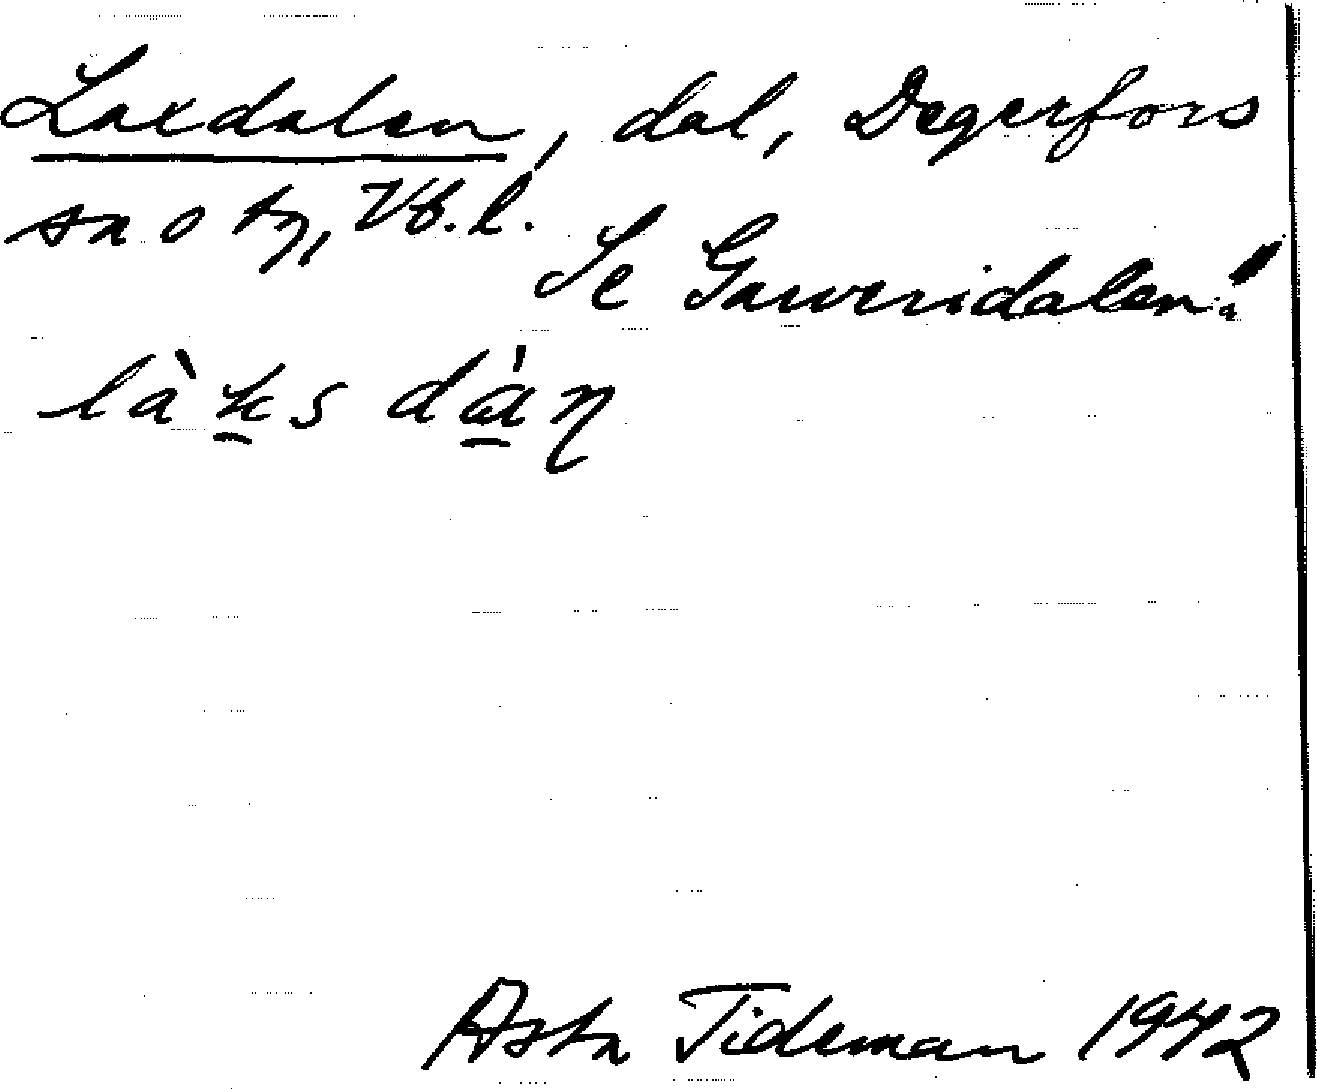 Laxdalen, dal, Degerfors
sn o tg, Vb.l.
Se Garveridalen!
làks dàn
Asta Tideman 1942